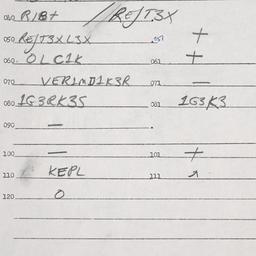 040 RIBt // RE/T3X
050 RE/T3XL3X 051 +
060. OLC1K 061 +
070 VER1MD1K3R 071 —
080 1G3RK3S 081 1G3K3
090 —
100 — 101 +
110 KEPL 111
120 O